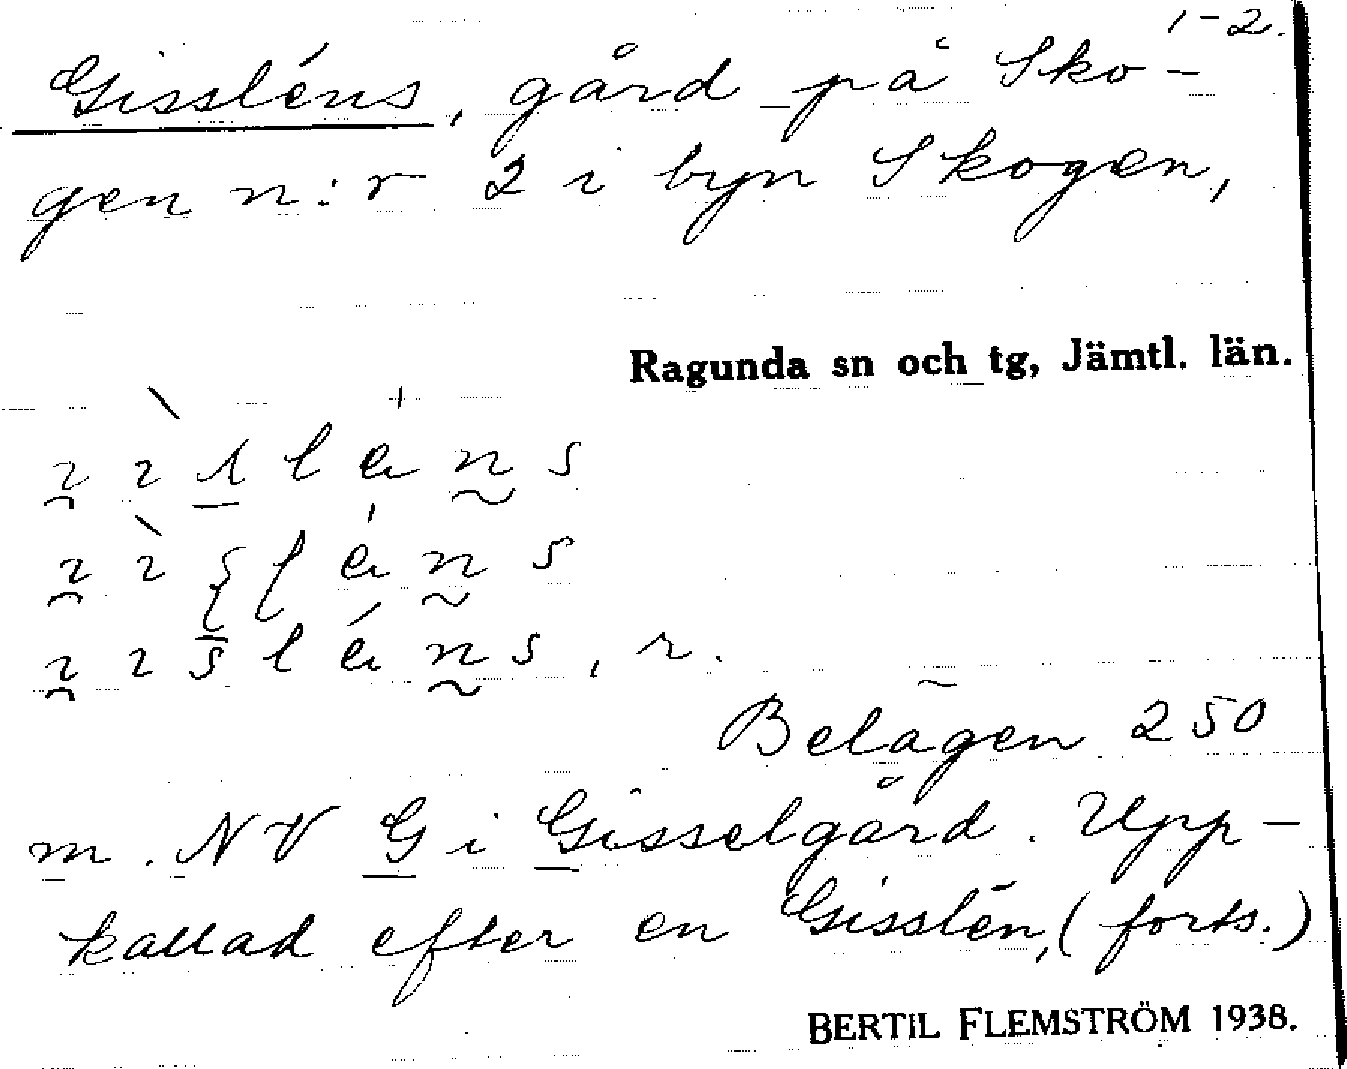 1-2.
Gissléns, gård på Sko-
gen n:r 2 i byn Skogen,
Ragunda sn och tg, Jämtl. län.
Belägen 250
m. NV G i Gisselgård. Upp-
kallad efter en Gisslén, (forts.)
BERTIL FLEMSTRÖM 1938.